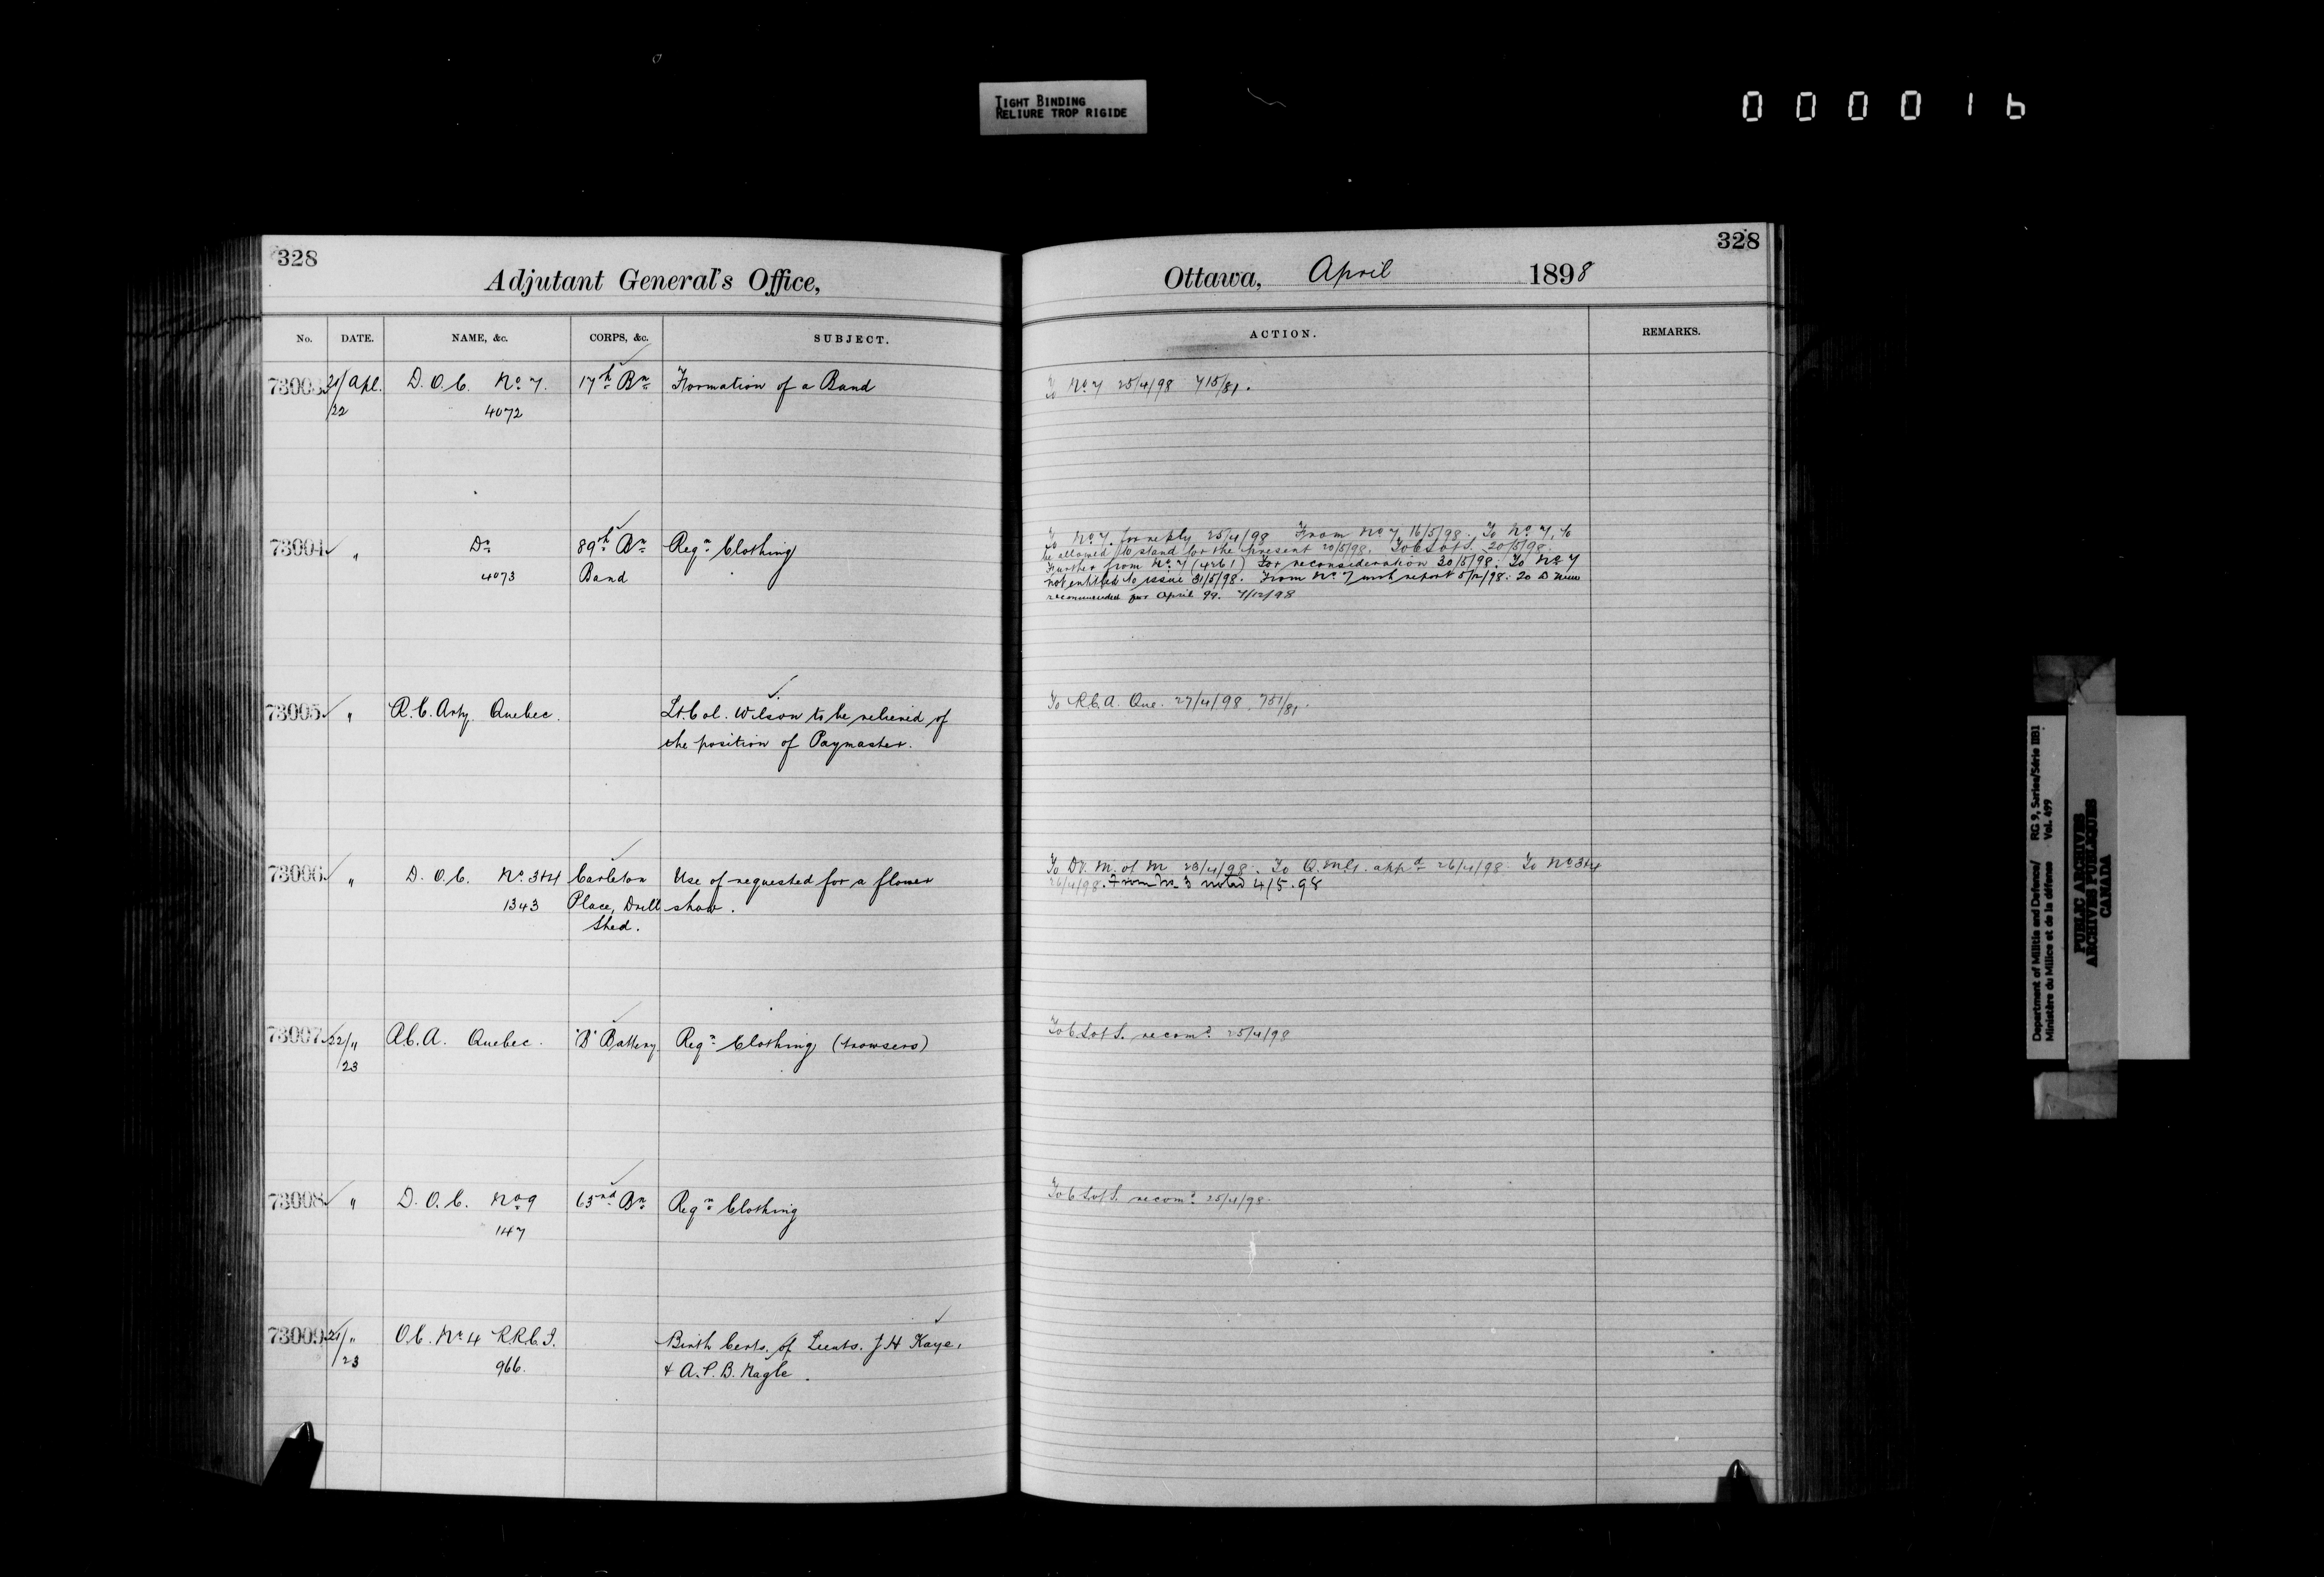 TIGHT BINDING
RELIURE TROP RIGIDE
000016
328
Adjutant General's Office,
No. DATE. NAME, &c. CORPS, &c. SUBJECT.
73003 21/Apl. D.O.C. No. 7. 17th Bn Formation of a Band
/22 4072
73004 " Do 89th Bn Reqn Clothing
4073 Band
73005 " R.C. Arty Quebec. Lt. Col. Wilson to be relieved of
the position of Paymaster.
73006 " D.O.C. No. 3&4 Carleton Use of requested for a flower
1343 Place, Drill show.
Shed.
73007 22/" R.C.A. Quebec. 'B' Battery. Reqn Clothing (trowsers)
/23
73008 " D.O.C. No 9 63nd Bn Reqn Clothing
147
73009 21/" O.C. No 4 R.R.C.I. Birth Certs. of Lieuts. J H Kaye,
/23 966. & A.P.B. Nagle.
328
Ottawa, April 1898
ACTION. REMARKS.
To No 7 25/4/98 715/81.
To No 7. for reply 25/4/98 From No 7 16/5/98. To No. 7, to
be allowed to stand for the present 20/5/98. To C.S. of S. 20/5/98.
Further from No. 7 (4261) For reconsideration 30/5/98. To No 7
not entitled to issue 31/5/98. From No 7 report 5/12/98. 20
recommended for April 99. 7/12/98
To R.C.A. Que. 27/4/98. 751/81.
To D. M. of M 23/4/98. To Q.M.G. appd 26/4/98. To No 3&4
26/4/98. From No. 3 noted 4/5.98
To C.S. of S. recomd. 25/4/98
To C.S. of S. recomd. 25/4/98.
Department of Militia and Defence/ RG 9, Series/Série IIB1
Ministère du Milice et de la défense Vol. 499
PUBLIC ARCHIVES
ARCHIVES PUBLIQUES
CANADA